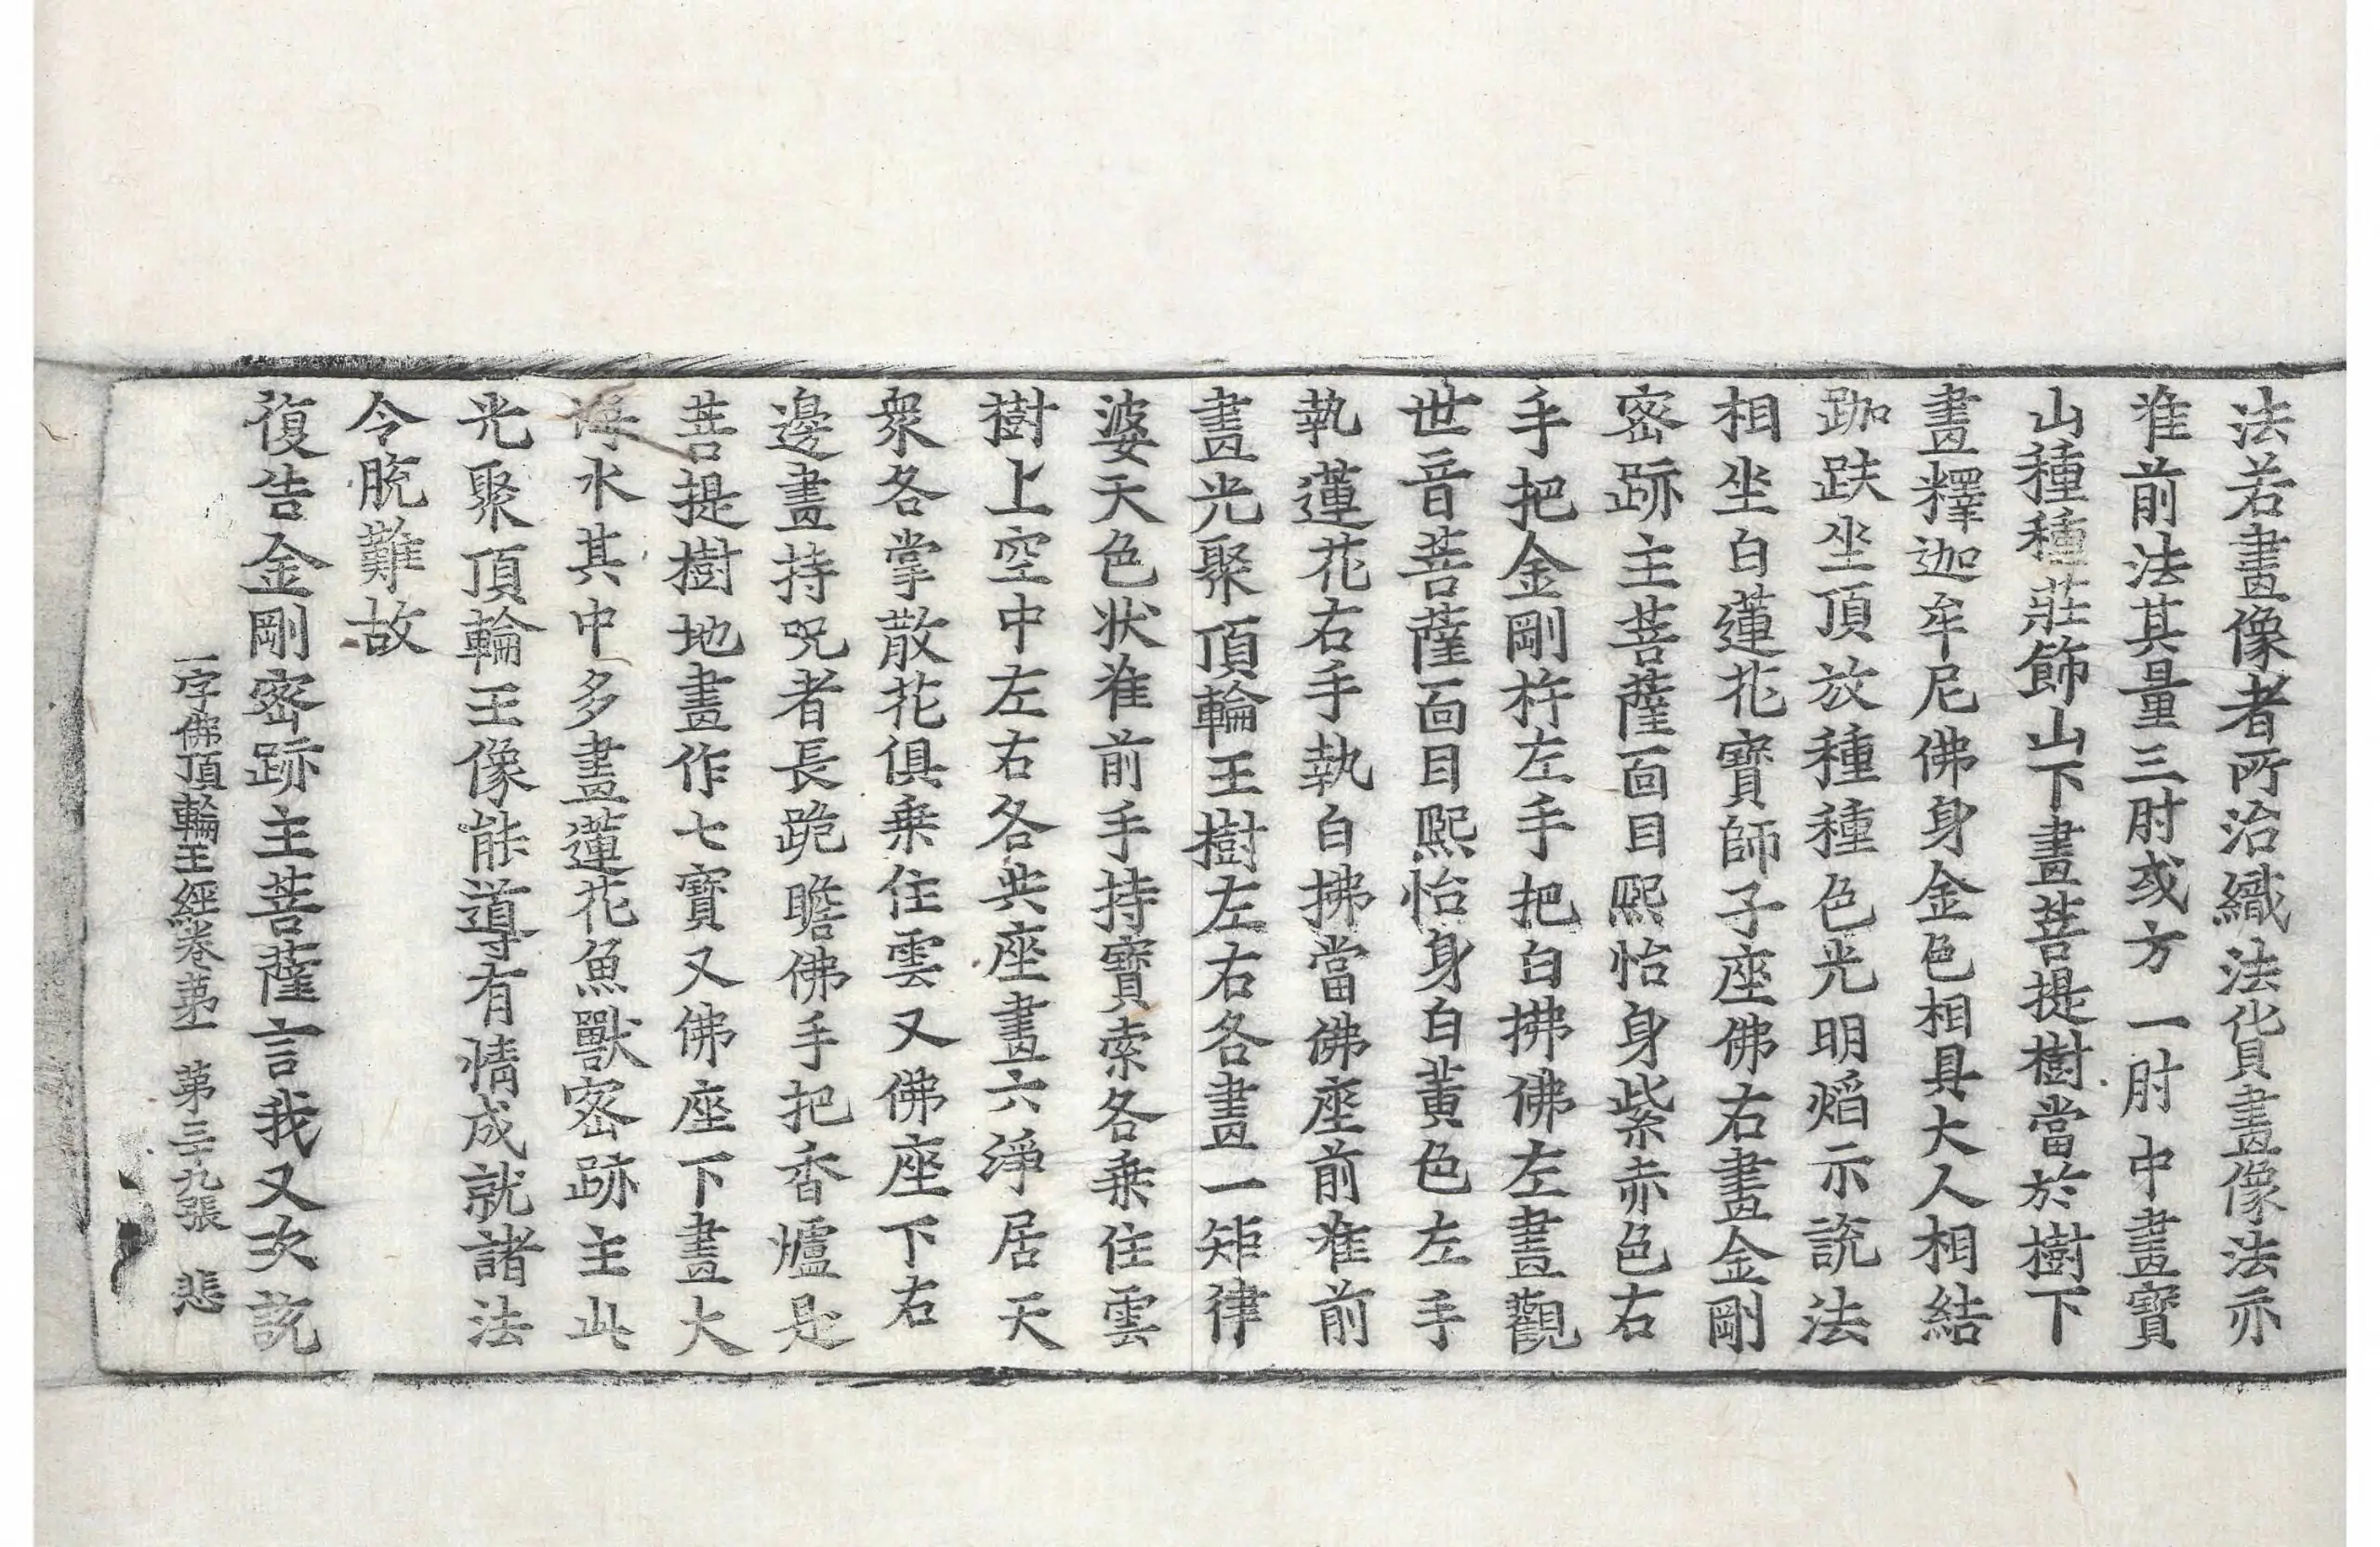 法若畫像者所治織法化貝畫像法亦
准前法其量三肘或方一肘中畫寶
山種種莊飾山下畫菩提樹當於樹下
畫釋迦牟尼佛身金色相具大人相結
跏趺坐頂放種種色光明焰示說法
相坐白蓮花寶師子座佛右畫金剛
密跡主菩薩面目熙怡身紫赤色右
手把金剛杵左手把白拂佛左畫觀
世音菩薩面目熙怡身白黃色左手
執蓮花右手執白拂當佛座前准前
畫光聚頂輪王樹左右各畫一矩律
婆天色狀准前手持寶索各乘住雲
樹上空中左右各共座畫六淨居天
衆各掌散花俱乘住雲又佛座下右
邊畫持呪者長跪瞻佛手把香爐是
菩提樹地畫作七寶又佛座下畫大
海水其中多畫蓮花魚獸密跡主此
光聚頂輪王像能導有情成就諸法
令脫難故
復告金剛密跡主菩薩言我又次說
一字佛頂輪王經卷第一 第三十九張 悲